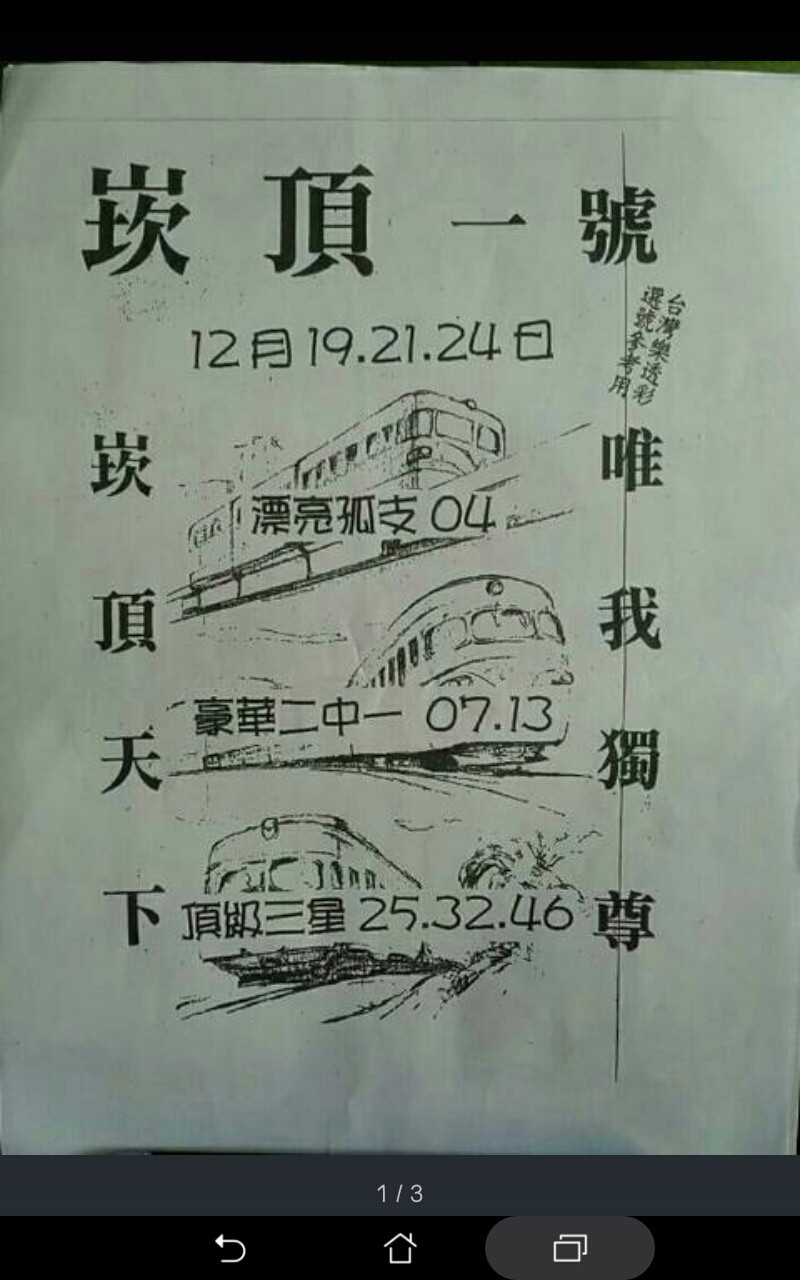 崁頂一號
台灣樂透彩
選號參考用
12月19.21.24日
崁頂天下
唯我獨尊
漂亮孤支 04
豪華二中一 07.13
頂級三星 25.32.46
1 / 3